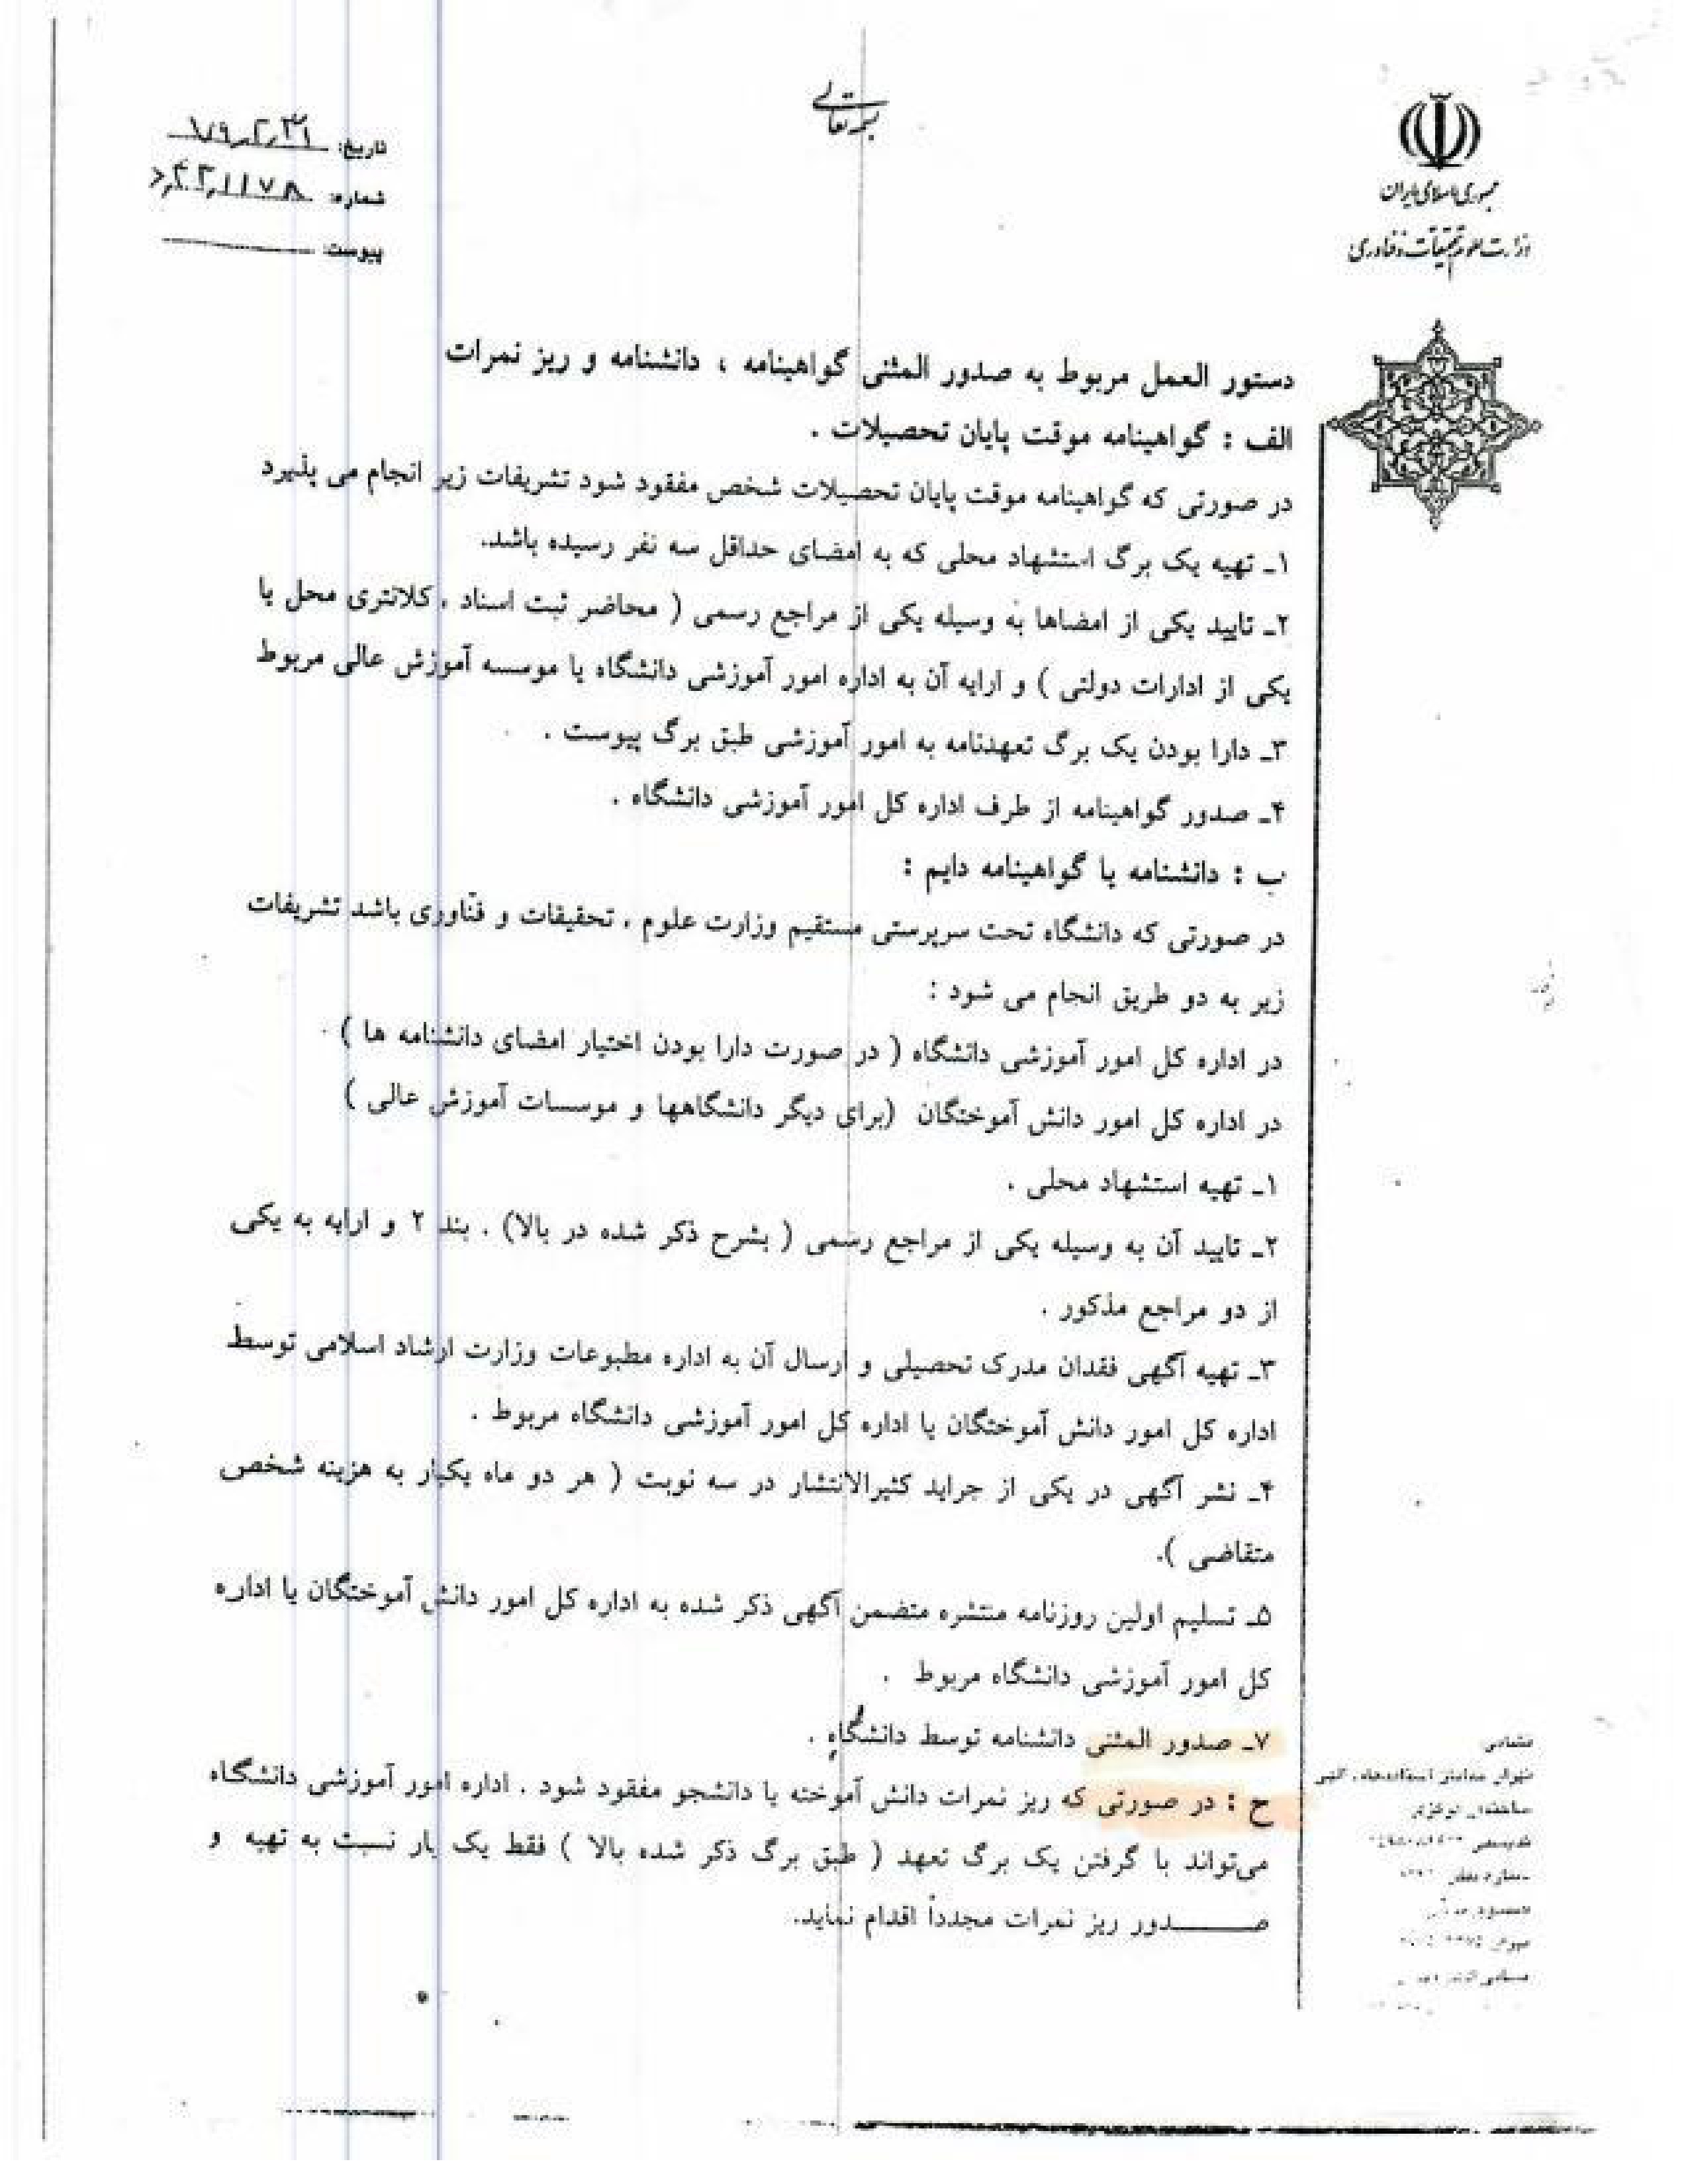 بسمه تعالی
جمهوری اسلامی ایران
وزارت علوم تحقیقات و فناوری
تاریخ: ۷۹،۲،۳۱
شماره: ۱۱۷۸
پیوست:
دستور العمل مربوط به صدور المثنی گواهینامه ، دانشنامه و ریز نمرات
الف : گواهینامه موقت پایان تحصیلات .
در صورتی که گواهینامه موقت پایان تحصیلات شخص مفقود شود تشریفات زیر انجام می پذیرد
۱ـ تهیه یک برگ استشهاد محلی که به امضای حداقل سه نفر رسیده باشد.
۲ـ تایید یکی از امضاها به وسیله یکی از مراجع رسمی ( محاضر ثبت اسناد ، کلانتری محل یا
یکی از ادارات دولتی ) و ارایه آن به اداره امور آموزشی دانشگاه یا موسسه آموزش عالی مربوط
۳ـ دارا بودن یک برگ تعهدنامه به امور آموزشی طبق برگ پیوست .
۴ـ صدور گواهینامه از طرف اداره کل امور آموزشی دانشگاه .
ب : دانشنامه یا گواهینامه دایم :
در صورتی که دانشگاه تحت سرپرستی مستقیم وزارت علوم ، تحقیقات و فنّاوری باشد تشریفات
زیر به دو طریق انجام می شود :
در اداره کل امور آموزشی دانشگاه ( در صورت دارا بودن اختیار امضای دانشنامه ها ) .
در اداره کل امور دانش آموختگان (برای دیگر دانشگاهها و موسسات آموزش عالی )
۱ـ تهیه استشهاد محلی .
۲ـ تایید آن به وسیله یکی از مراجع رسمی ( بشرح ذکر شده در بالا) . بند ۲ و ارایه به یکی
از دو مراجع مذکور .
۳ـ تهیه آگهی فقدان مدرک تحصیلی و ارسال آن به اداره مطبوعات وزارت ارشاد اسلامی توسط
اداره کل امور دانش آموختگان یا اداره کل امور آموزشی دانشگاه مربوط .
۴ـ نشر آگهی در یکی از جراید کثیرالانتشار در سه نوبت ( هر دو ماه یکبار به هزینه شخص
متقاضی ).
۵ـ تسلیم اولین روزنامه منتشره متضمن آگهی ذکر شده به اداره کل امور دانش آموختگان یا اداره
کل امور آموزشی دانشگاه مربوط .
۷ـ صدور المثنی دانشنامه توسط دانشگاه .
ح : در صورتی که ریز نمرات دانش آموخته یا دانشجو مفقود شود . اداره امور آموزشی دانشگاه
می‌تواند با گرفتن یک برگ تعهد ( طبق برگ ذکر شده بالا ) فقط یک بار نسبت به تهیه و
صـــــــدور ریز نمرات مجدداً اقدام نماید.